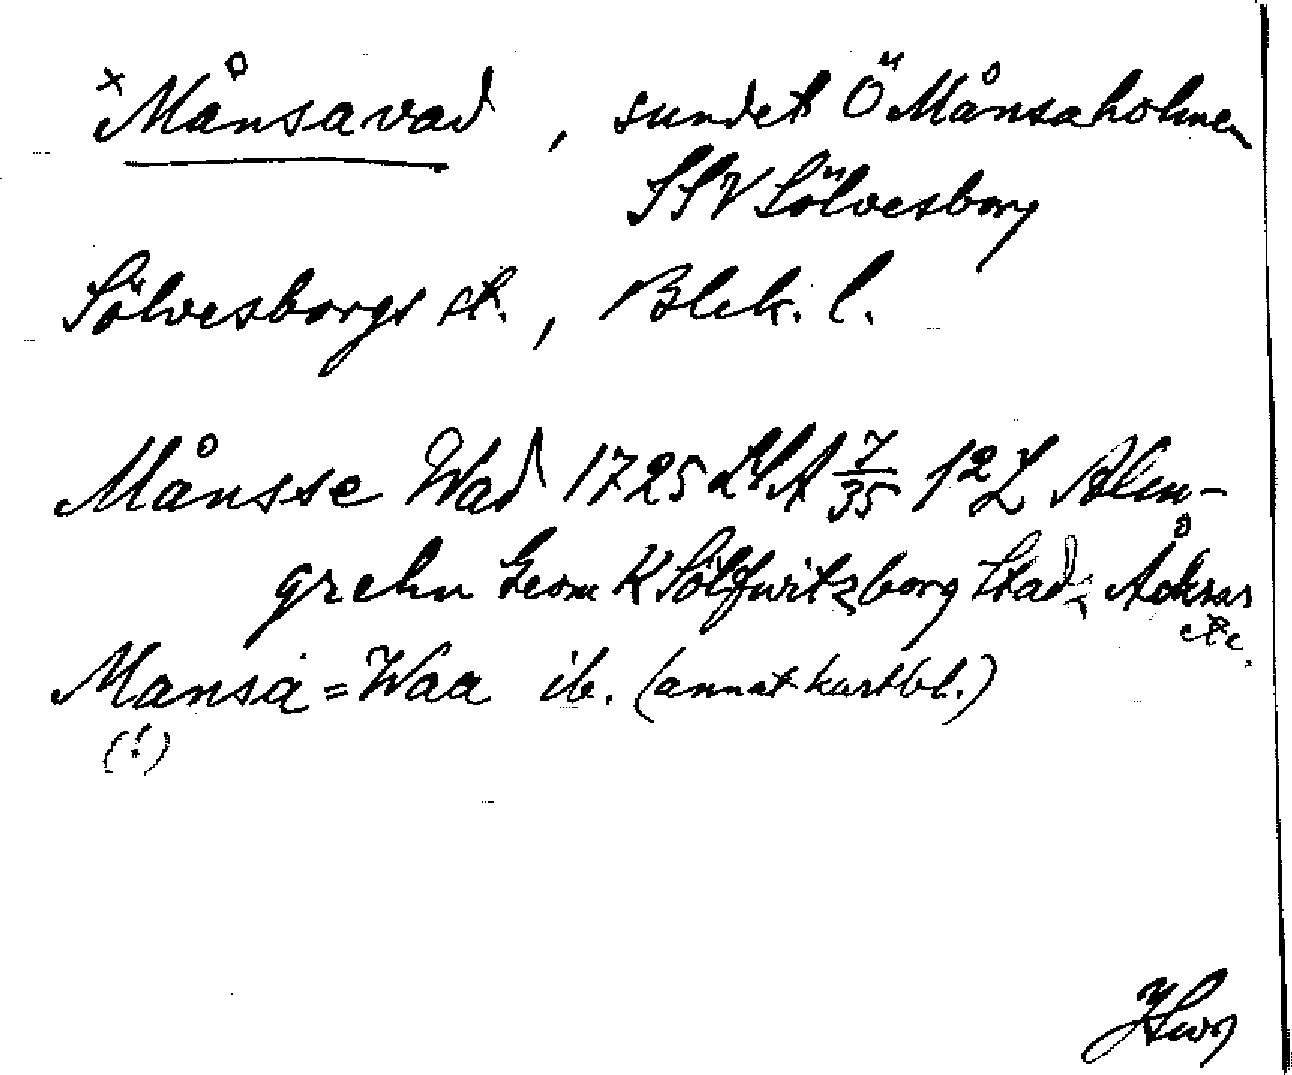 ×Månsavad, sundet Ö Månsaholmen
SSV Sölvesborg
Sölvesborgs st., Blek. l.
Månsse Wad 1725 LMA 7/35 Alm-
grehn Geom K Sölfwitzborg Stads Åkrar &c.
Mansa=Waa ib. (annat kartbl.)
(!)